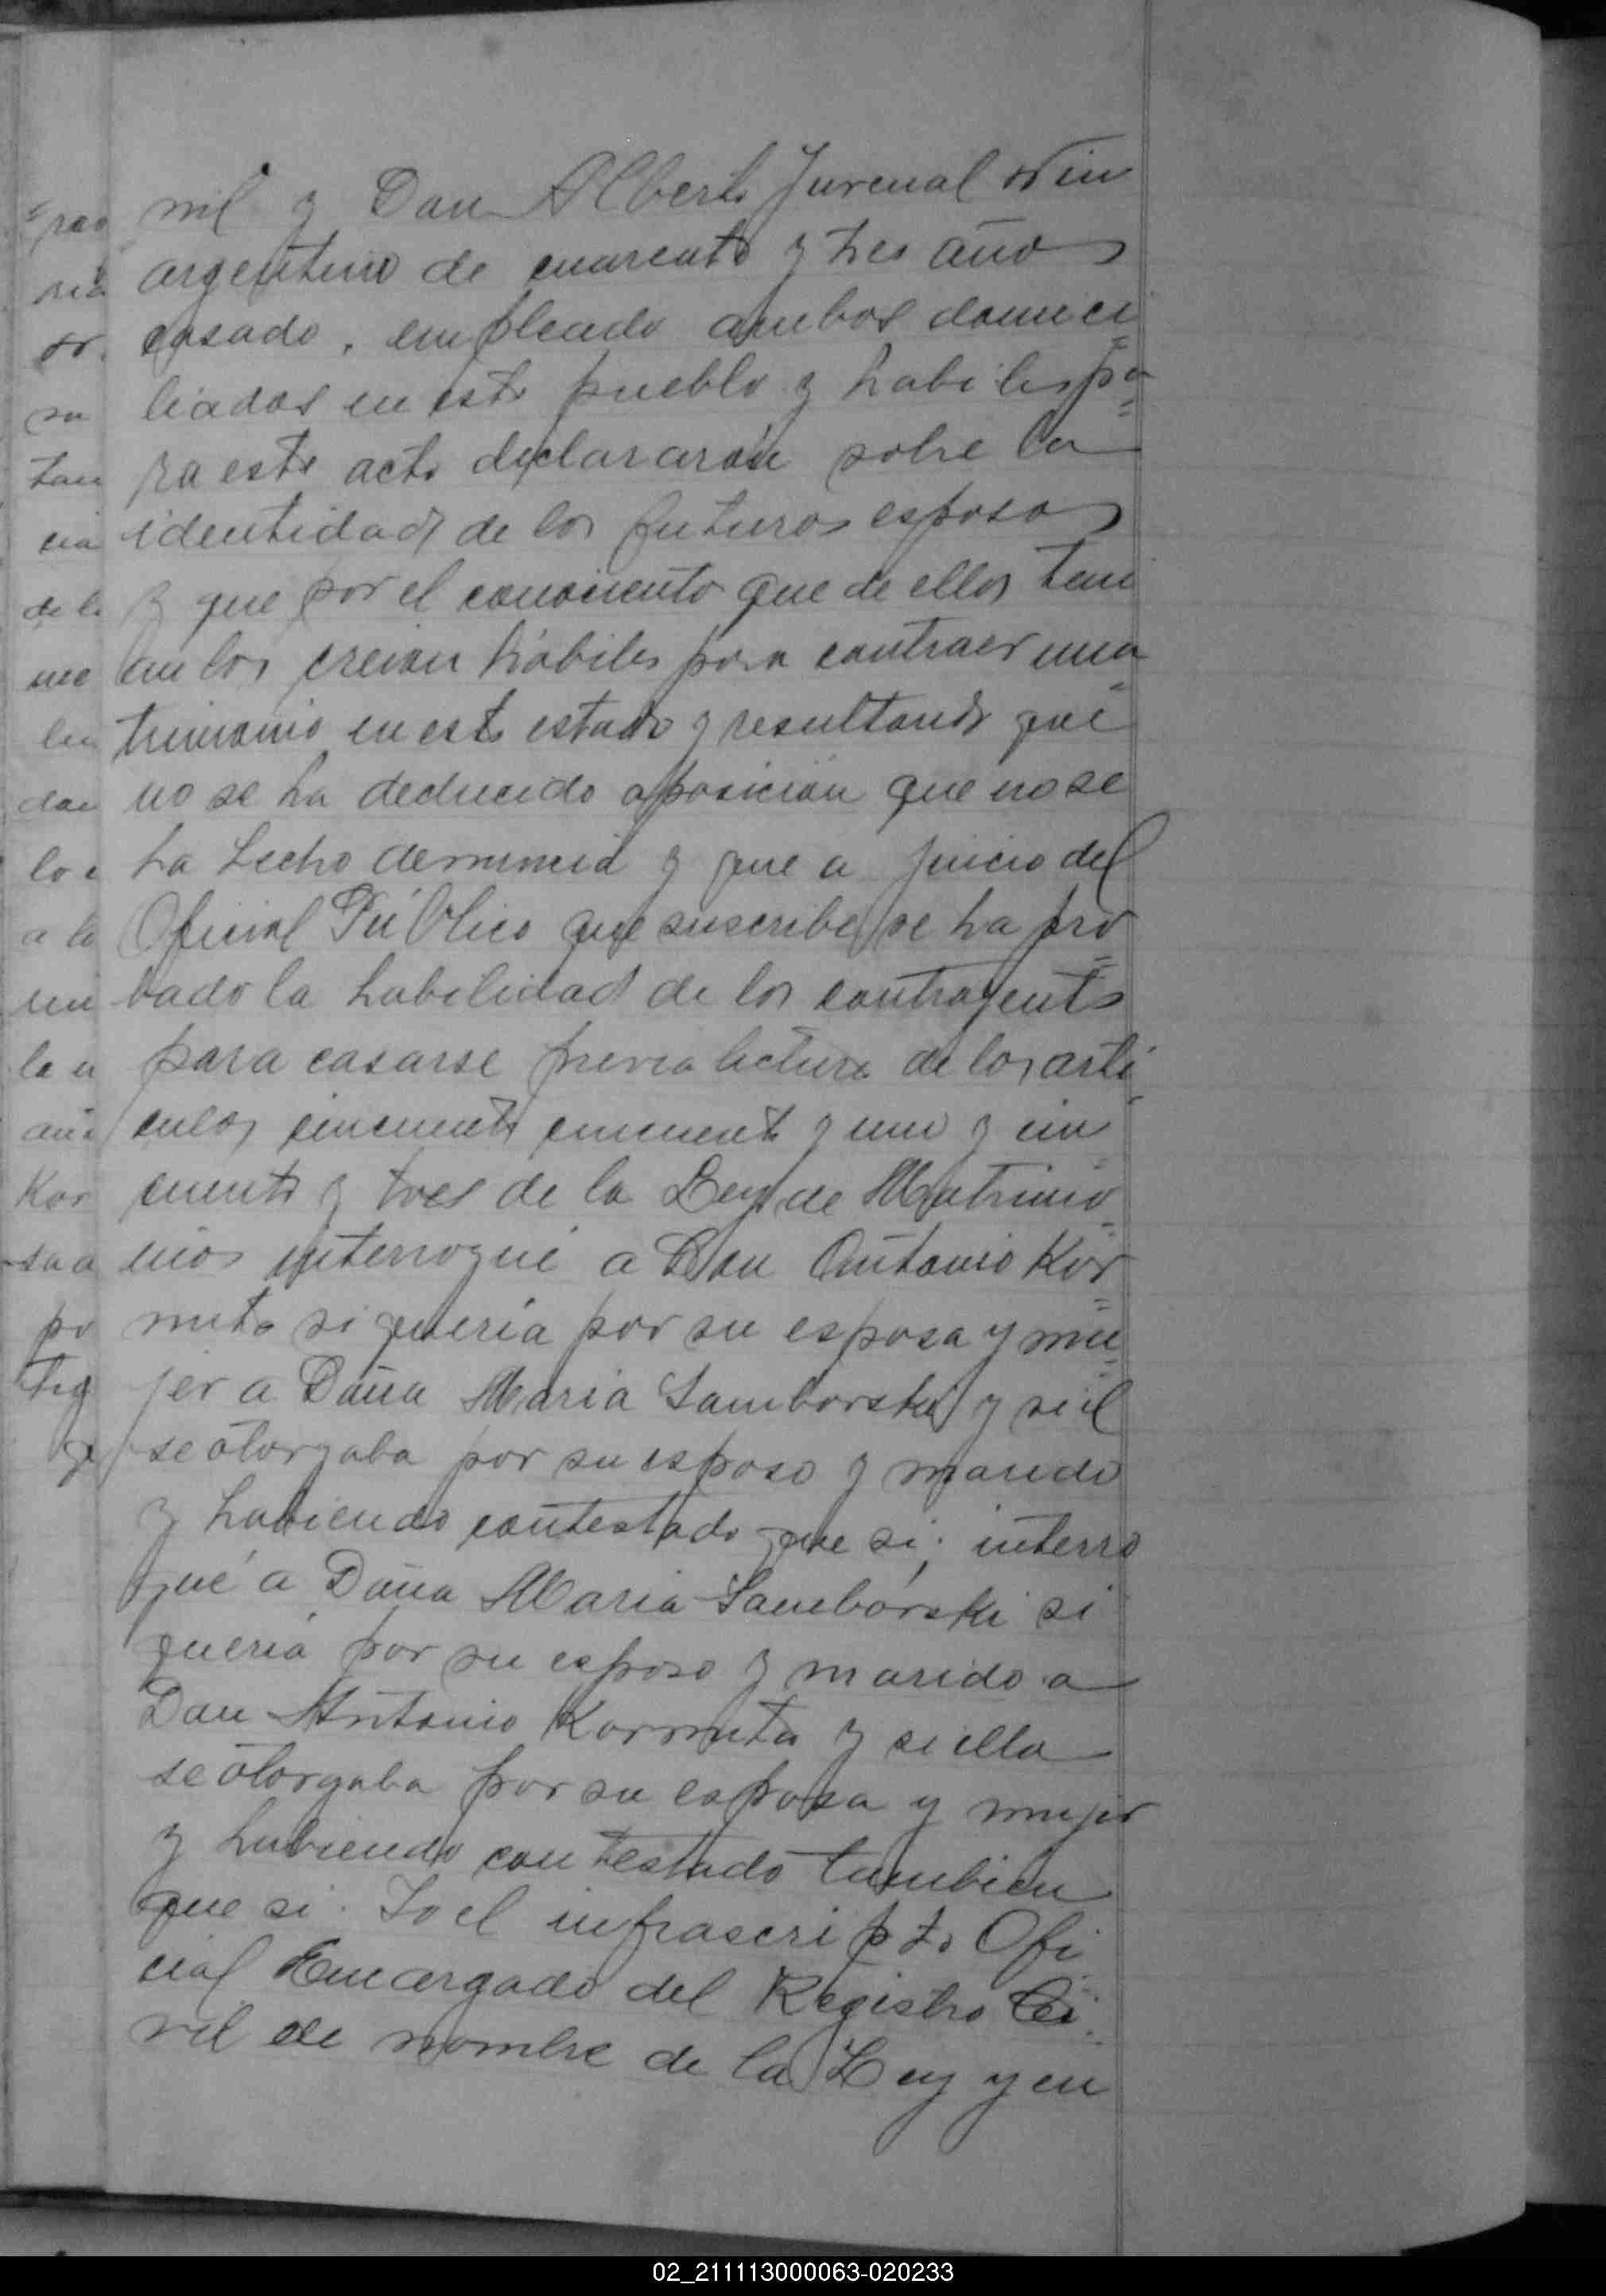 mil y Don Alberto Juvenal
argentino de cuarenta y tres años
casado, empleado ambos domici
liados en este pueblo y habiles pa=
ra este acto declararón sobre la
identidad de los futuros esposos
y que por el conocimento que de ellos teni
an los creian hábiles para contraer ma=
trimonio en este estado y resultando que
no se ha deducido oposicion que no se
ha hecho denuncia y que a juicio del
Oficial Público que suscribe se ha pro=
bado la habilidad de los contrayentes
para casarse previa lectura de los arti
culos cincuenta cincuenta y uno y cin=
cuenta y tres de la Ley de Matrimo=
nios interrogué a Don Antonio Kor=
muta si quería por su esposa y mu=
jer a Doña Maria Samborski y si él
se otorgaba por su esposo y marido
y habiendo contestado que si; interro
gué a Doña Maria Samborski si
quería por su esposo y marido a
Don Antonio Kormuta y si ella
se otorgaba por su esposa y mujer
y habiendo contestado tambien
que si. Yo el infrascripto Ofi
cial Encargado del Registro Ci=
vil de nombre de la Ley y en
02_211113000063-020233